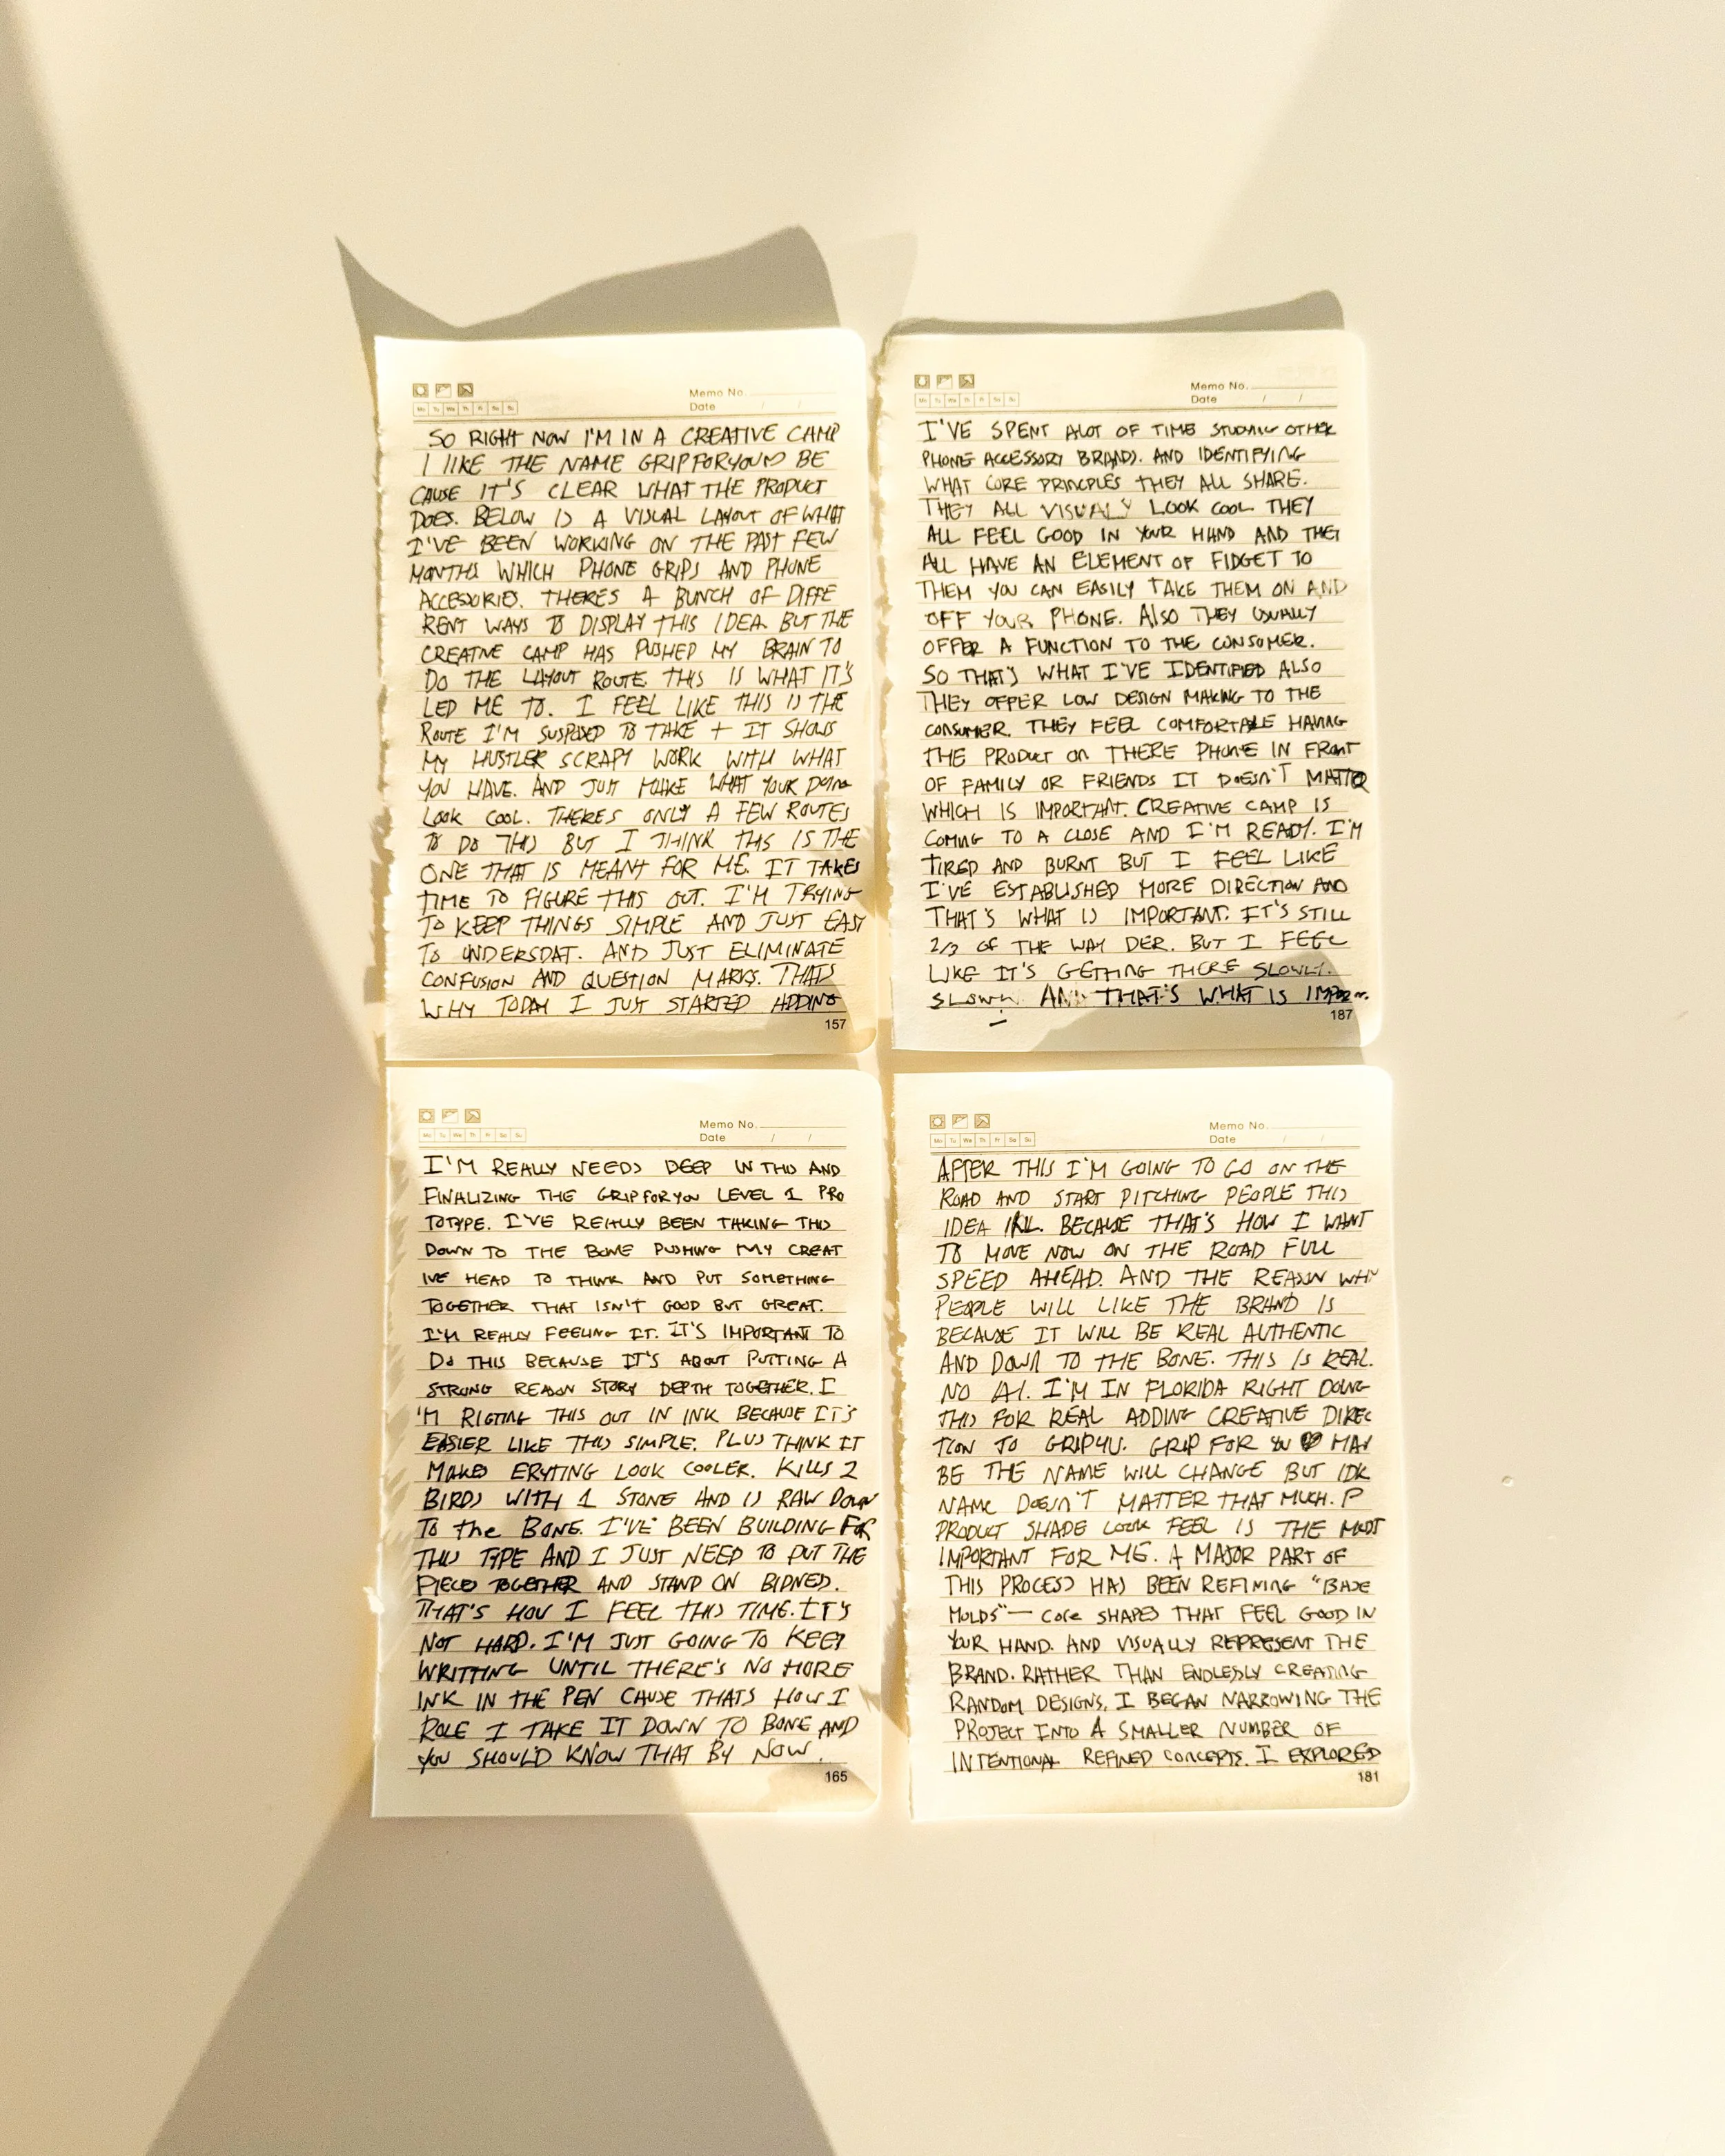 Memo No.
Date / /
Mo Tu We Th Fr Sa Su
SO RIGHT NOW I'M IN A CREATIVE CAMP
I LIKE THE NAME GRIPFORYOU BE
CAUSE IT'S CLEAR WHAT THE PRODUCT
DOES. BELOW IS A VISUAL LAYOUT OF WHAT
I'VE BEEN WORKING ON THE PAST FEW
MONTHS WHICH PHONE GRIPS AND PHONE
ACCESSORIES. THERES A BUNCH OF DIFFE
RENT WAYS TO DISPLAY THIS IDEA. BUT THE
CREATIVE CAMP HAS PUSHED MY BRAIN TO
DO THE LAYOUT ROUTE. THIS IS WHAT IT'S
LED ME TO. I FEEL LIKE THIS IS THE
ROUTE I'M SUSPOSED TO TAKE + IT SHOWS
MY HUSTLER SCRAPY WORK WITH WHAT
YOU HAVE. AND JUST MAKE WHAT YOUR DOING
LOOK COOL. THERES ONLY A FEW ROUTES
TO DO THIS BUT I THINK THIS IS THE
ONE THAT IS MEANT FOR ME. IT TAKES
TIME TO FIGURE THIS OUT. I'M TRYING
TO KEEP THINGS SIMPLE AND JUST EASY
TO UNDERSDAT. AND JUST ELIMINATE
CONFUSION AND QUESTION MARKS. THATS
WHY TODAY I JUST STARTED ADDING
157
Memo No.
Date / /
Mo Tu We Th Fr Sa Su
I'VE SPENT ALOT OF TIME STUDING OTHER
PHONE ACCESSORY BRANDS. AND IDENTIFYING
WHAT CORE PRINCPLES THEY ALL SHARE.
THEY ALL VISUALY LOOK COOL THEY
ALL FEEL GOOD IN YOUR HAND AND THEY
ALL HAVE AN ELEMENT OF FIDGET TO
THEM YOU CAN EASILY TAKE THEM ON AND
OFF YOUR PHONE. ALSO THEY USUALLY
OFFER A FUNCTION TO THE CONSUMER.
SO THAT'S WHAT I'VE IDENTIFIED ALSO
THEY OFFER LOW DESIGN MAKING TO THE
CONSUMER. THEY FEEL COMFORTABLE HAVING
THE PRODUCT ON THERE PHONE IN FRONT
OF FAMILY OR FRIENDS IT DOESN'T MATTER
WHICH IS IMPORTANT. CREATIVE CAMP IS
COMING TO A CLOSE AND I'M READY. I'M
TIRED AND BURNT BUT I FEEL LIKE
I'VE ESTABLISHED MORE DIRECTION AND
THAT'S WHAT IS IMPORTANT. IT'S STILL
2/3 OF THE WAY DER. BUT I FEEL
LIKE IT'S GETTING THERE SLOWLY.
AND THAT'S WHAT IS
187
Memo No.
Date / /
Mo Tu We Th Fr Sa Su
I'M REALLY NEEDS DEEP IN THIS AND
FINALIZING THE GRIPFORYOU LEVEL 1 PRO
TOTYPE. I'VE REALLY BEEN TAKING THIS
DOWN TO THE BONE PUSHING MY CREAT
IVE HEAD TO THINK AND PUT SOMETHING
TOGETHER THAT ISN'T GOOD BUT GREAT.
I'M REALLY FEELING IT. IT'S IMPORTANT TO
DO THIS BECAUSE IT'S ABOUT PUTTING A
STRONG REASON STORY DEPTH TOGETHER. I
'M RIGTING THIS OUT IN INK BECAUSE IT'S
EASIER LIKE THIS SIMPLE. PLUS THINK IT
MAKES ERYTING LOOK COOLER. KILLS 2
BIRDS WITH 1 STONE AND IS RAW DOWN
TO the BONE. I'VE BEEN BUILDING FOR
THIS TYPE AND I JUST NEED TO PUT THE
PIECES TOGETHER AND STAND ON BIDNED.
THAT'S HOW I FEEL THIS TIME. IT'S
NOT HARD. I'M JUST GOING TO KEEP
WRITTING UNTIL THERE'S NO MORE
INK IN THE PEN CAUSE THATS HOW I
ROLE I TAKE IT DOWN TO BONE AND
YOU SHOULD KNOW THAT BY NOW.
165
Memo No.
Date / /
Mo Tu We Th Fr Sa Su
AFTER THIS I'M GOING TO GO ON THE
ROAD AND START PITCHING PEOPLE THIS
IDEA IRL. BECAUSE THAT'S HOW I WANT
TO MOVE NOW ON THE ROAD FULL
SPEED AHEAD. AND THE REASON WHY
PEOPLE WILL LIKE THE BRAND IS
BECAUSE IT WILL BE REAL AUTHENTIC
AND DOWN TO THE BONE. THIS IS REAL.
NO AI. I'M IN FLORIDA RIGHT DOING
THIS FOR REAL ADDING CREATIVE DIREC
TION TO GRIP4U. GRIP FOR YOU MAY
BE THE NAME WILL CHANGE BUT IDK
NAME DOESN'T MATTER THAT MUCH. P
PRODUCT SHADE LOOK FEEL IS THE MOST
IMPORTANT FOR ME. A MAJOR PART OF
THIS PROCESS HAS BEEN REFINING "BASE
MOLDS" — CORE SHAPES THAT FEEL GOOD IN
YOUR HAND. AND VISUALLY REPRESENT THE
BRAND. RATHER THAN ENDLESSLY CREATING
RANDOM DESIGNS, I BEGAN NARROWING THE
PROJECT INTO A SMALLER NUMBER OF
INTENTIONAL REFINED CONCEPTS. I EXPLORED
181